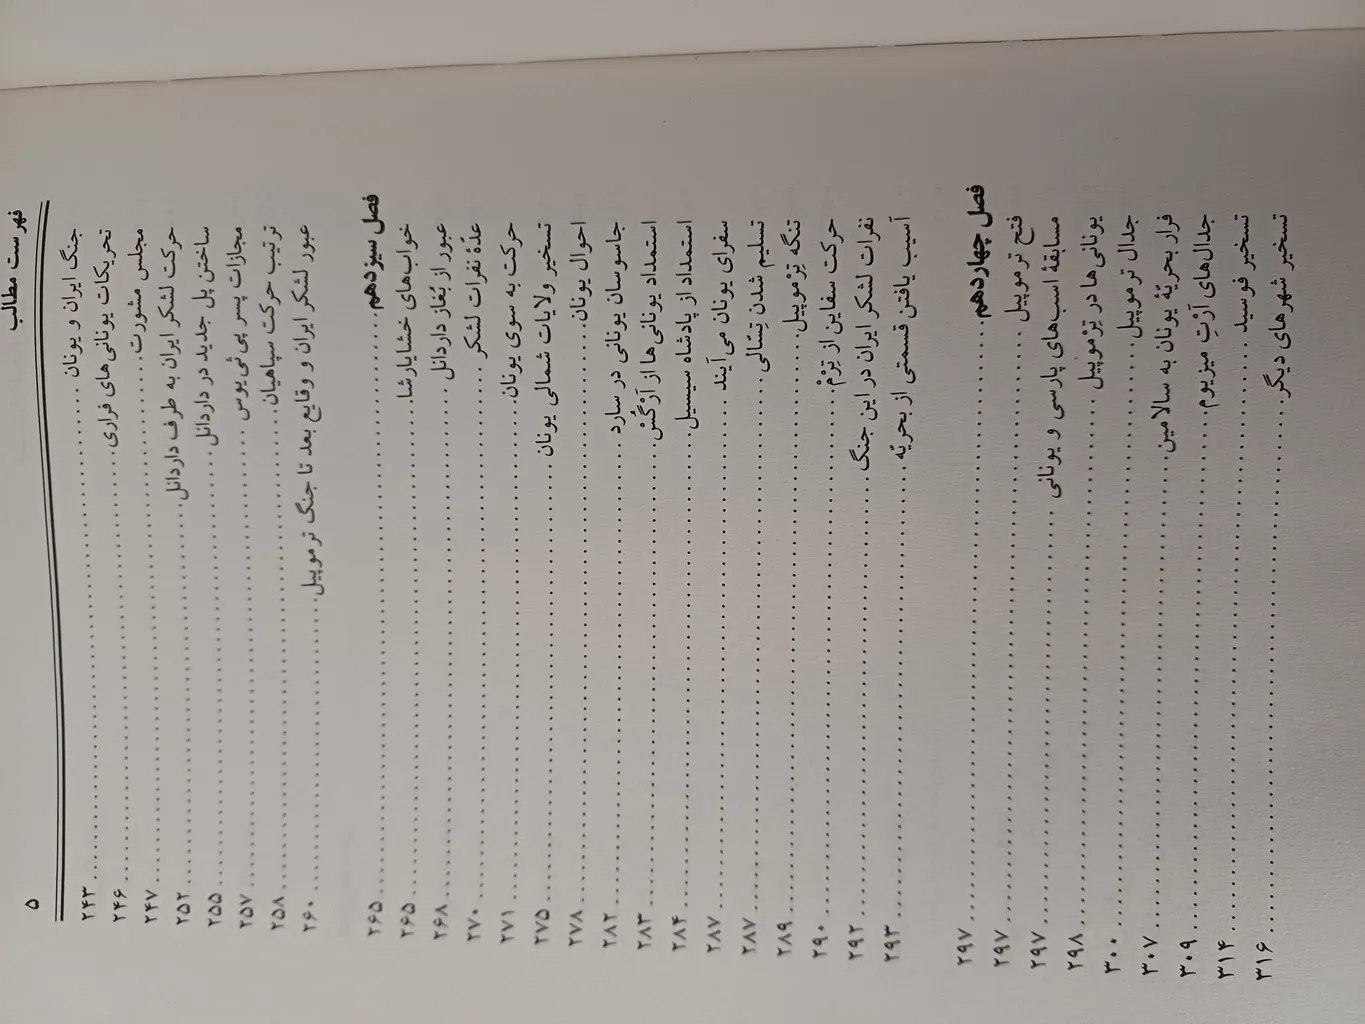 فهرست مطالب ۵
جنگ ایران و یونان ........ ۲۴۳
تحریکات یونانی‌های فراری ........ ۲۴۶
مجلس مشورت ........ ۲۴۷
حرکت لشکر ایران به طرف داردانل ........ ۲۵۲
ساختن پل جدید در داردانل ........ ۲۵۵
مجازات پسر پی‌ثی‌یوس ........ ۲۵۷
ترتیب حرکت سپاهیان ........ ۲۵۸
عبور لشکر ایران و وقایع بعد تا جنگ ترموپیل ........ ۲۶۰
فصل سیزدهم ........ ۲۶۵
خواب‌های خشایارشا ........ ۲۶۵
عبور از بُغاز داردانل ........ ۲۶۸
عدّهٔ نفرات لشکر ........ ۲۷۰
حرکت به سوی یونان ........ ۲۷۱
تسخیر ولایات شمالی یونان ........ ۲۷۵
احوال یونان ........ ۲۷۸
جاسوسان یونانی در سارد ........ ۲۸۲
استمداد یونانی‌ها از آرْگُسْ ........ ۲۸۳
استمداد از پادشاه سیسیل ........ ۲۸۴
سفرای یونان می‌آیند ........ ۲۸۷
تسلیم شدن تِسّالی ........ ۲۸۷
تنگهٔ تِرْموپیل ........ ۲۸۹
حرکت سفاین از تِرْمْ ........ ۲۹۰
نفرات لشکر ایران در این جنگ ........ ۲۹۲
آسیب یافتن قسمتی از بحریّه ........ ۲۹۳
فصل چهاردهم ........ ۲۹۷
فتح ترموپیل ........ ۲۹۷
مسابقهٔ اسب‌های پارسی و یونانی ........ ۲۹۷
یونانی‌ها در تِرْموپیل ........ ۲۹۸
جدال ترموپیل ........ ۳۰۰
فرار بحریّهٔ یونان به سالامین ........ ۳۰۷
جدال‌های آرْتِ میزیوم ........ ۳۰۹
تسخیر فوسید ........ ۳۱۴
تسخیر شهرهای دیگر ........ ۳۱۶